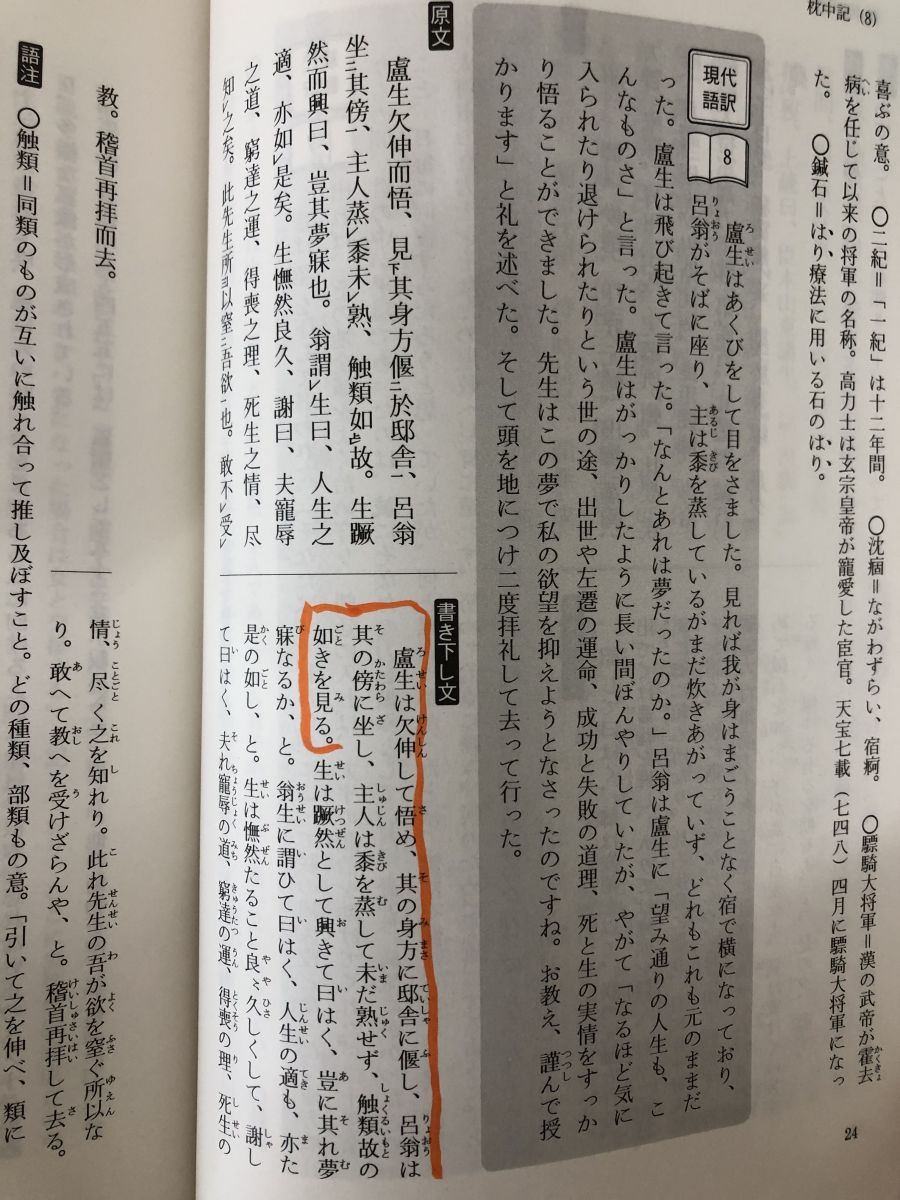 枕中記(8)
喜ぶの意。　〇二紀=「一紀」は十二年間。　〇沈痼=ながわずらい、宿痾。　〇驃騎大将軍=漢の武帝が霍去
病を任じて以来の将軍の名称。高力士は玄宗皇帝が寵愛した宦官。天宝七載(七四八)四月に驃騎大将軍になっ
た。　〇鍼石=はり療法に用いる石のはり。
24
現代語訳
8
盧生はあくびをして目をさました。見れば我が身はまごうことなく宿で横になっており、
呂翁がそばに座り、主は黍を蒸しているがまだ炊きあがっていず、どれもこれも元のままだ
った。盧生は飛び起きて言った。「なんとあれは夢だったのか。」呂翁は盧生に「望み通りの人生も、こ
んなものさ」と言った。盧生はがっかりしたように長い間ぼんやりしていたが、やがて「なるほど気に
入られたり退けられたりという世の途、出世や左遷の運命、成功と失敗の道理、死と生の実情をすっか
り悟ることができました。先生はこの夢で私の欲望を抑えようとなさったのですね。お教え、謹んで授
かります」と礼を述べた。そして頭を地につけ二度拝礼して去って行った。
原文
盧生欠伸而悟、見下其身方偃二於邸舎一、呂翁
坐二其傍一、主人蒸レ黍未レ熟、触類如上レ故。生蹶
然而興曰、豈其夢寐也。翁謂レ生曰、人生之
適、亦如レ是矣。生憮然良久、謝曰、夫寵辱
之道、窮達之運、得喪之理、死生之情、尽
知レ之矣。此先生所三以窒二吾欲一也。敢不レ受レ
教。稽首再拝而去。
書き下し文
盧生は欠伸して悟め、其の身方に邸舎に偃し、呂翁は
其の傍に坐し、主人は黍を蒸して未だ熟せず、触類故の
如きを見る。生は蹶然として興きて曰はく、豈に其れ夢
寐なるか、と。翁生に謂ひて曰はく、人生の適も、亦た
是の如し、と。生は憮然たること良〻久しくして、謝し
て曰はく、夫れ寵辱の道、窮達の運、得喪の理、死生の
情、尽く之を知れり。此れ先生の吾が欲を窒ぐ所以な
り。敢へて教へを受けざらんや、と。稽首再拝して去る。
語注
〇触類=同類のものが互いに触れ合って推し及ぼすこと。どの種類、部類もの意。「引いて之を伸べ、類に